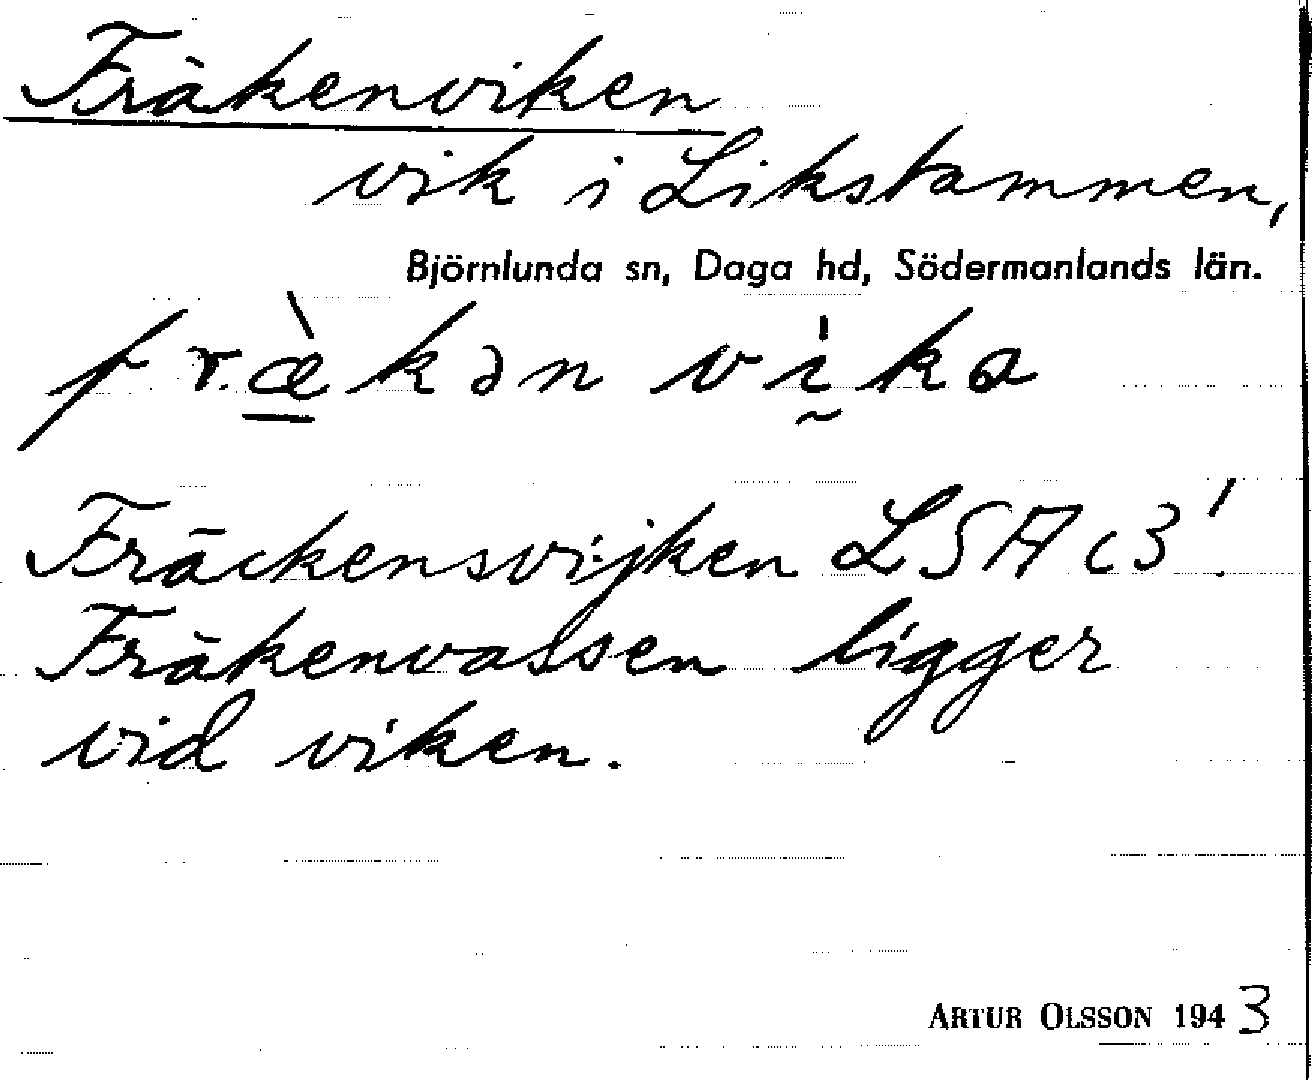 Fräkenviken
vik i Likstammen,
Björnlunda sn, Daga hd, Södermanlands län.
fræ̀kən vìka
Fräckensvijken LSA c3!
Fräkenvassen ligger
vid viken.
ARTUR OLSSON 1943